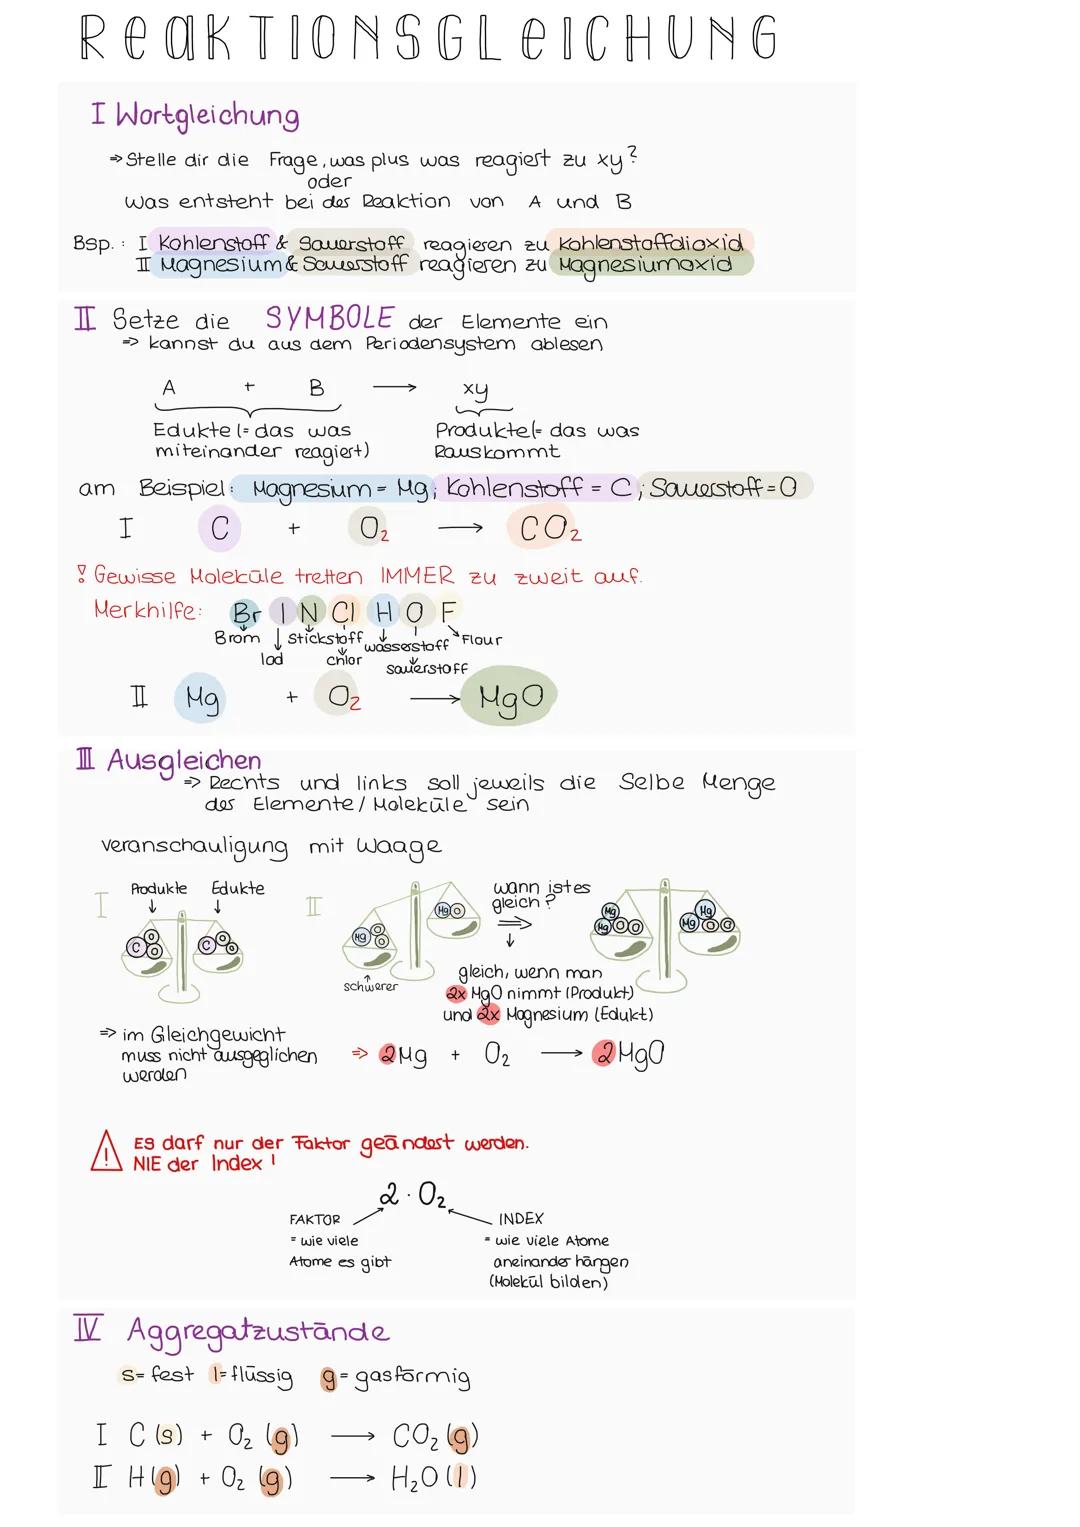 REAKTIONSGLEICHUNG
I Wortgleichung
⇒ Stelle dir die Frage, was plus was reagiert zu xy?
oder
Was entsteht bei der Reaktion von A und B
Bsp.: I Kohlenstoff & Sauerstoff reagieren zu Kohlenstoffdioxid
II Magnesium & Sauerstoff reagieren zu Magnesiumoxid
II Setze die SYMBOLE der Elemente ein
=> kannst du aus dem Periodensystem ablesen
A + B → xy
Edukte (= das was
miteinander reagiert)
Produkte (= das was
Rauskommt
am Beispiel: Magnesium = Mg; Kohlenstoff = C; Sauerstoff = O
I C + O₂ → CO₂
! Gewisse Moleküle tretten IMMER zu zweit auf.
Merkhilfe: Br I N Cl H O F
Brom ↓ Stickstoff wasserstoff Flour
Iod chlor sauerstoff
II Mg + O₂ → MgO
III Ausgleichen
=> Rechts und links soll jeweils die Selbe Menge
der Elemente / Moleküle sein
Veranschauligung mit Waage
I Produkte Edukte
C O O C O O
II
Mg O O Mg O
schwerer
wann ist es
gleich?
Mg Mg O O Mg Mg O O
gleich, wenn man
2x MgO nimmt (Produkt)
und 2x Magnesium (Edukt)
=> im Gleichgewicht
muss nicht ausgeglichen
werden
=> 2Mg + O₂ → 2MgO
! ES darf nur der Faktor geändert werden.
NIE der Index!
2 · O₂
FAKTOR
= wie viele
Atome es gibt
INDEX
= wie viele Atome
aneinander hängen
(Molekül bilden)
IV Aggregatzustände
s= fest l= flüssig g= gasförmig
I C (s) + O₂ (g) → CO₂ (g)
II H (g) + O₂ (g) → H₂O (l)